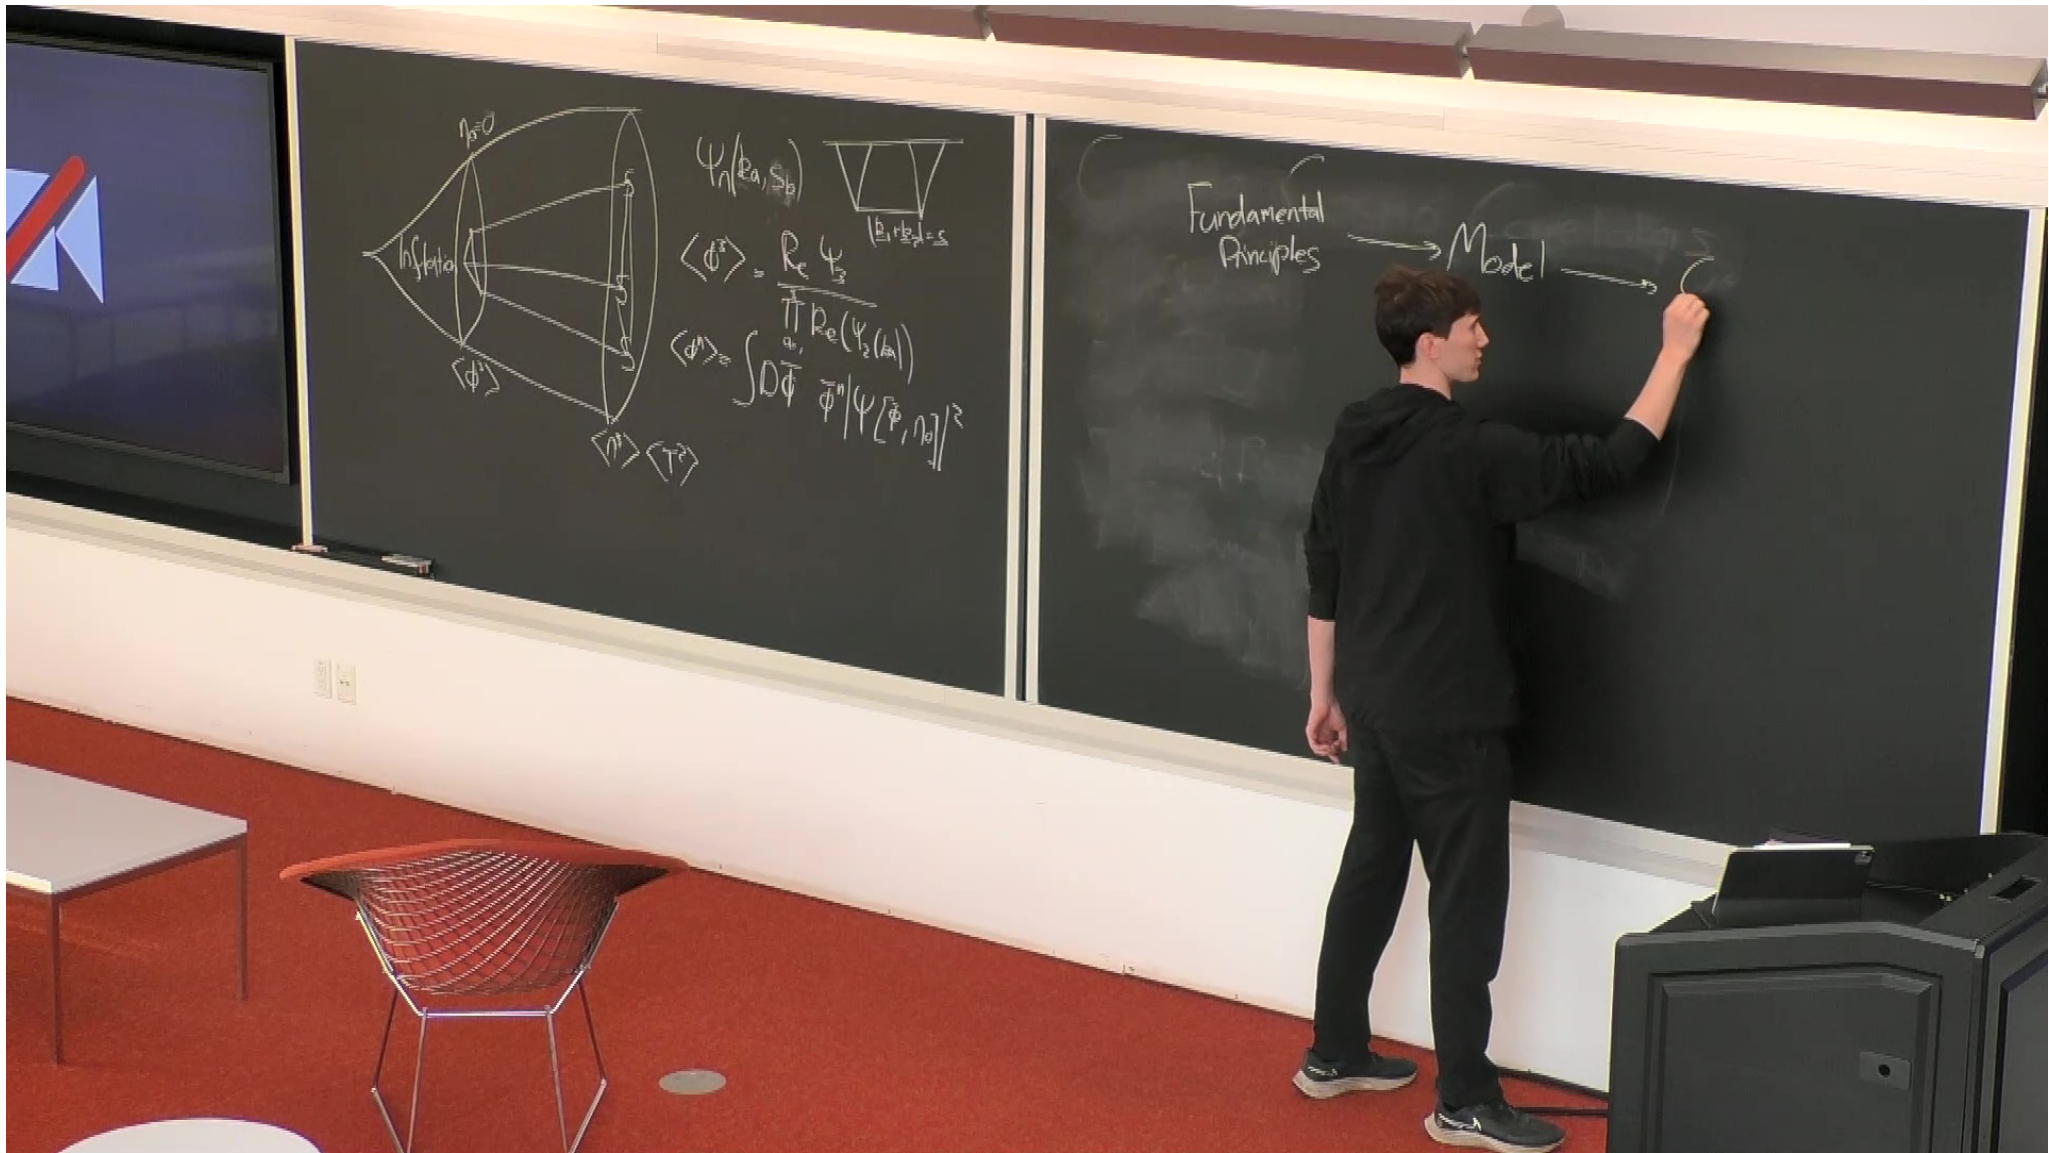 η₀=0
Inflation
⟨ϕ³⟩
⟨n³⟩ ⟨T²⟩
ψₙ(k̲ₐ, S_b)
|k̲₁+k̲₂|=s
⟨ϕ³⟩ = Re ψ₃
π Re(ψ₂(kₐ))
⟨ϕⁿ⟩= ∫Dϕ̄ ϕ̄ⁿ|Ψ[ϕ̄, η₀]|²
Fundamental
Principles
Model